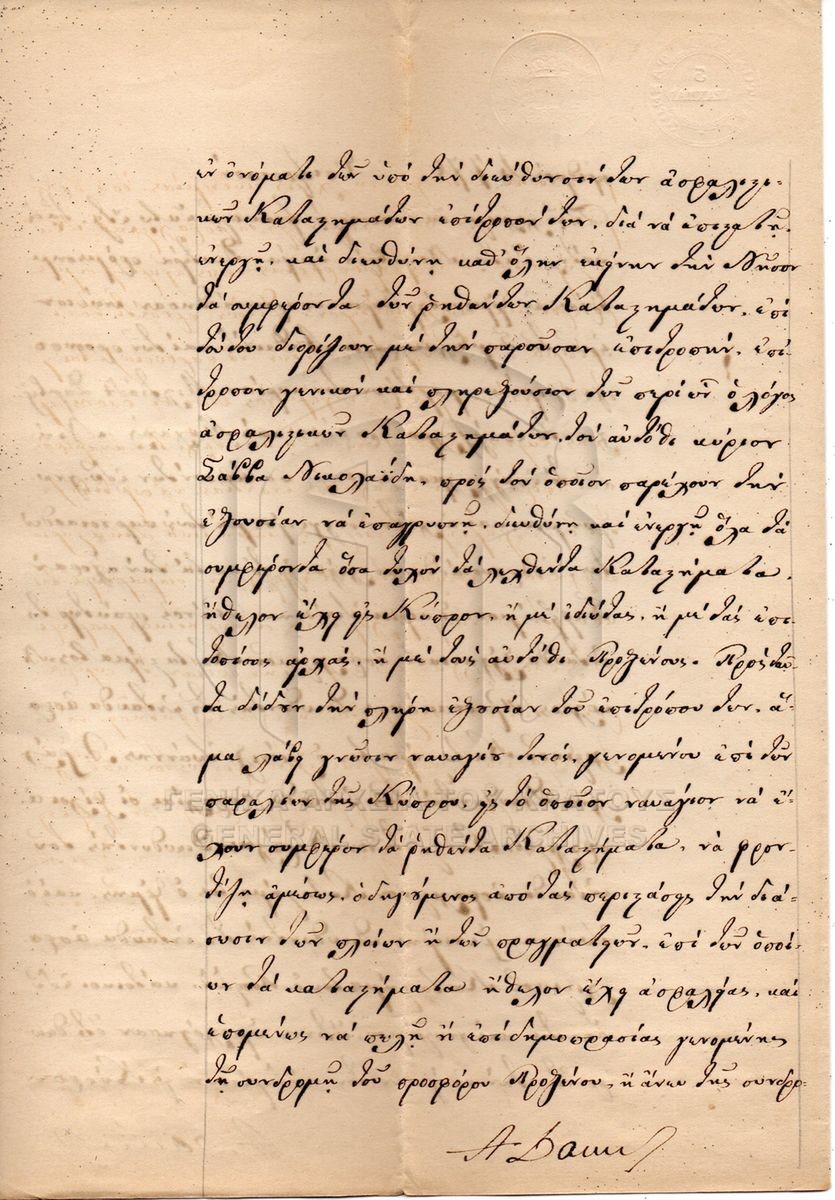 ἐν ὀνόματι τῶν ὑπὸ τὴν διεύθυνσίν των ἀσφαλιστι-
κῶν Καταστημάτων ἐπίτροπόν των, διὰ νὰ ἐπιστατῇ,
ἐνεργῇ, καὶ διευθύνῃ καθ' ὅλην ἐκείνην τὴν Νῆσον
τὰ συμφέροντα τῶν ῥηθέντων Καταστημάτων, ἐπὶ
τούτου διορίζουν μὲ τὴν παροῦσαν ἐπιτροπήν, ἐπί-
τροπον γενικὸν καὶ πληρεξούσιον τῶν περὶ ὧν ὁ λόγος
ἀσφαλιστικῶν Καταστημάτων, τὸν αὐτόθι κύριον
Σάββα Νικολαΐδη, πρὸς τὸν ὁποῖον παρέχουν τὴν
ἐξουσίαν νὰ ἐπαγρυπνῇ, διευθύνῃ καὶ ἐνεργῇ ὅλα τὰ
συμφέροντα ὅσα τυχὸν τὰ λεχθέντα Καταστήματα,
ἤθελον ἔχῃ εἰς Κύπρον, ἢ μὲ ἰδιώτας, ἢ μὲ τὰς ἐπι-
τοπίους ἀρχάς, ἢ μὲ τοὺς αὐτόθι Προξένους. Πρὸς τοῦ-
τα δίδουν τὴν πλήρη ἐξουσίαν τοῦ ἐπιτρόπου των, ἅ-
μα λάβῃ γνῶσιν ναυαγίου τινός, γενομένου ἐπὶ τῶν
παραλίων τῆς Κύπρου, εἰς τὸ ὁποῖον ναυάγιον νὰ ἔ-
χουν συμφέρον τὰ ῥηθέντα Καταστήματα, νὰ φρον-
τίζῃ ἀμέσως, ὁδηγούμενος ἀπὸ τὰς περιστάσεις τὴν διά-
σωσιν τῶν πλοίων ἢ τῶν πραγματειῶν, ἐπὶ τῶν ὁποί-
ων τὰ καταστήματα ἤθελον ἔχῃ ἀσφαλείας, καὶ
ἑπομένως νὰ πωλῇ ἢ ἐπὶ δημοπρασίας γενομένης
τῇ συνδρομῇ τοῦ προσφόρου Προξένου, ἢ ἄνευ τῆς συνδρο-
ΓΕΝΙΚΑ ΑΡΧΕΙΑ ΤΟΥ ΚΡΑΤΟΥΣ
GENERAL STATE ARCHIVES